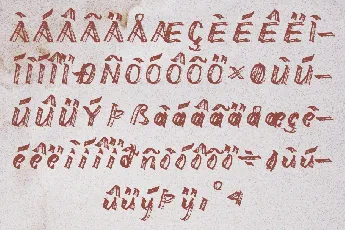 ÀÁÂÃÄÅÆÇÈÉÊËÌ-
ÍÎÏÐÑÒÓÔÕÖרÙÚ-
ÛÜÝÞßàáâãäåæçè-
éêëìíîïðñòóôõö÷øùú-
ûüýþÿı°4